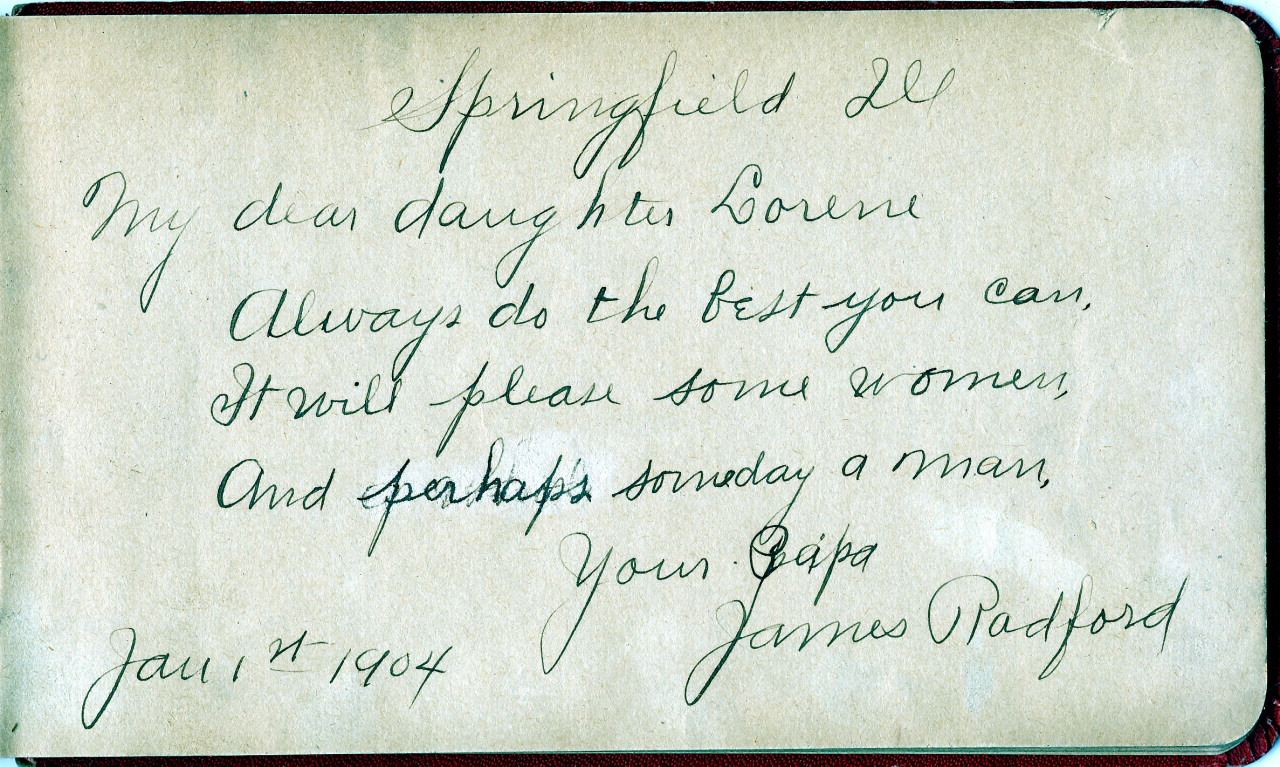 Springfield Ill
My dear daughter Lorene
Always do the best you can,
It will please some women,
And perhaps someday a man,
Your Papa
James Radford
Jan 1st 1904